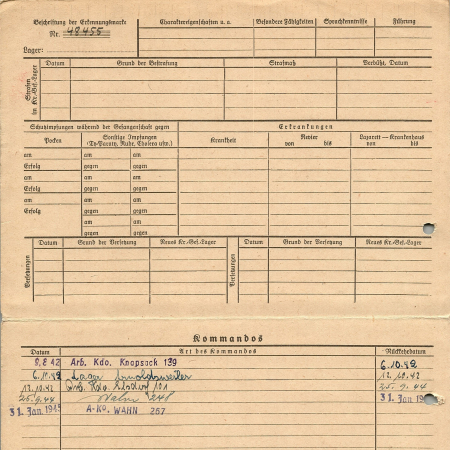 Beschriftung der Erkennungsmarke
Nr. 48455
Lager:
Charaktereigenschaften u. a.
Besondere Fähigkeiten
Sprachkenntnisse
Führung
Strafen im Kr.-Gef.-Lager
Datum
Grund der Bestrafung
Strafmaß
Verbüßt, Datum
Schutzimpfungen während der Gefangenschaft gegen
Erkrankungen
Pocken
Sonstige Impfungen
(Ty-Paraty, Ruhr, Cholera usw.)
Krankheit
Revier
von bis
Lazarett — Krankenhaus
von bis
am am
Erfolg gegen
am am
Erfolg gegen
am am
Erfolg gegen
am
gegen
Versetzungen
Datum
Grund der Versetzung
Neues Kr.-Gef.-Lager
Versetzungen
Datum
Grund der Versetzung
Neues Kr.-Gef.-Lager
Kommandos
Datum
Art des Kommandos
Rückkehrdatum
Arb. Kdo. Knapsack 139 6.10.42
6.10.42 Lager Arnoldsweiler 12.10.42
12.10.42 Arb. Kdo. Elsdorf 101 25.9.44
25.9.44 Wahn 31. Jan.
31. Jan. 1945 A-Ko. WAHN 257